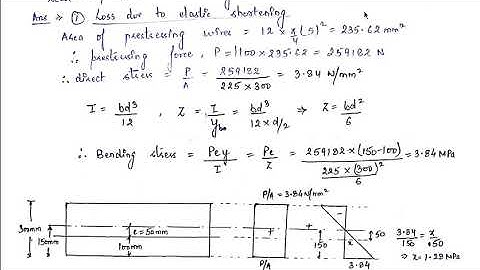 Ans :⇒ ① Loss due to elastic shortening
Area of prestressing wires = 12 × π/4 (5)² = 235.62 mm²
∴ prestressing force, P = 1100 × 235.62 = 259182 N
∴ direct stress = P/A = 259182 / 225 × 300 = 3.84 N/mm²
I = bd³/12 , Z = I/y = bd³/12 × d/2 ⇒ Z = bd²/6
∴ Bending stress = Pey/I = Pe/Z = 259182 × (150-100) / 225 × (300)²/6 = 3.84 MPa
P/A = 3.84 N/mm²
300mm
150mm
e = 50mm
100mm
+
150
+
-
x
50
3.84/150 = x/50
⇒ x = 1.28 MPa
P/A
3.84